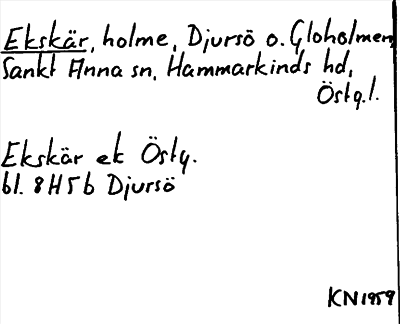 Ekskär, holme, Djursö o. Gloholmen,
Sankt Anna sn, Hammarkinds hd,
Östg.l.
Ekskär ek Östg.
bl. 8H5b Djursö
KN1959